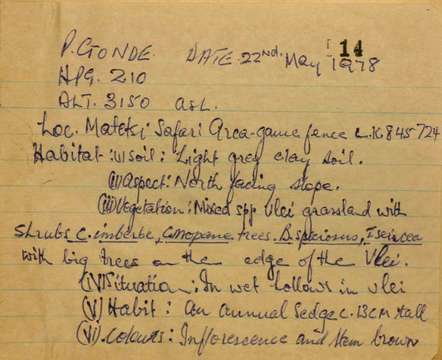 P. GONDE. DATE. 22nd. May 1978
14
HPG. 210
ALT. 3150 asl.
Loc. Matetsi Safari Area-game fence c.K 845724
Habitat: (i) soil: Light grey clay soil.
(ii) Aspect: North facing slope.
(iii) Vegetation: Mixed spp vlei grassland with
shrubs C. imberbe, C. mopane trees. D. speciosus, T. sericea
with big trees on the edge of the vlei.
(iv) Situation: In wet hollows in vlei
(v) Habit: An annual sedge c. 13 cm tall
(vi). Colours: Inflorescence and stem brown